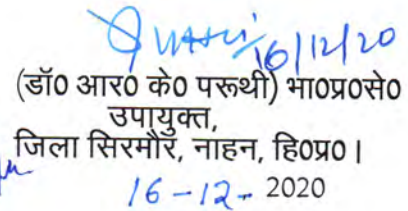 16/12/20
(डॉ0 आर0 के0 परूथी) भा0प्र0से0
उपायुक्त,
जिला सिरमौर, नाहन, हि0प्र0।
16-12- 2020